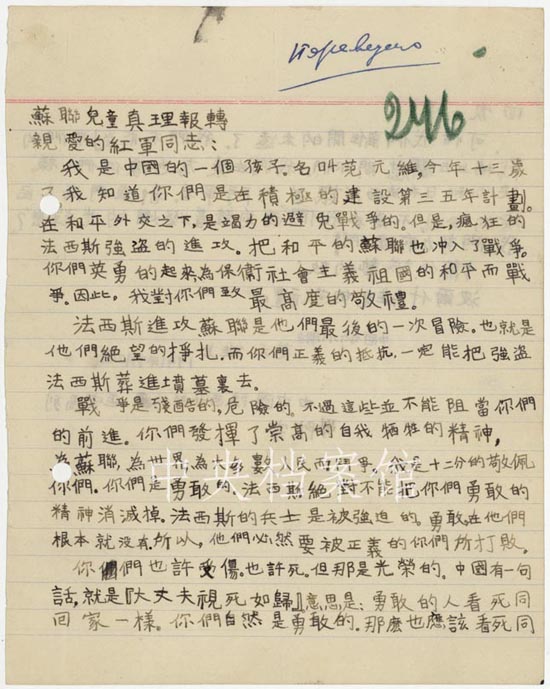 Переведено
246
蘇聯兒童真理報轉
親愛的紅軍同志:
我是中國的一個孩子.名叫范元維,今年十三歲
了.我知道你們是在積極的建設第三五年計劃。
在和平外交之下,是竭力的避免戰爭的.但是,瘋狂的
法西斯強盜的進攻.把和平的蘇聯也冲入了戰爭。
你們英勇的起來為保衛社會主義祖國的和平而戰
爭。因此,我對你們致最高度的敬禮。
法西斯進攻蘇聯是他們最後的一次冒險.也就是
他們絕望的掙扎.而你們正義的抵抗,一定能把強盜
法西斯葬進墳墓裏去。
戰爭是殘酷的,危險的.不過這些並不能阻當你們
的前進。你們發揮了崇高的自我犧牲的精神,
為蘇聯,為世界,為大多數人民而戰爭。我是十二分的敬佩
你們.你們是勇敢的.法西斯絕對不能把你們勇敢的
精神消滅掉.法西斯的兵士是被強迫的,勇敢在他們
根本就沒有.所以,他們必然要被正義的你們所打敗。
你們也許受傷.也許死.但那是光榮的.中國有一句
話,就是『大丈夫視死如歸』意思是:勇敢的人看死同
回家一樣。你們自然是勇敢的.那麽也應該看死同
中央档案馆